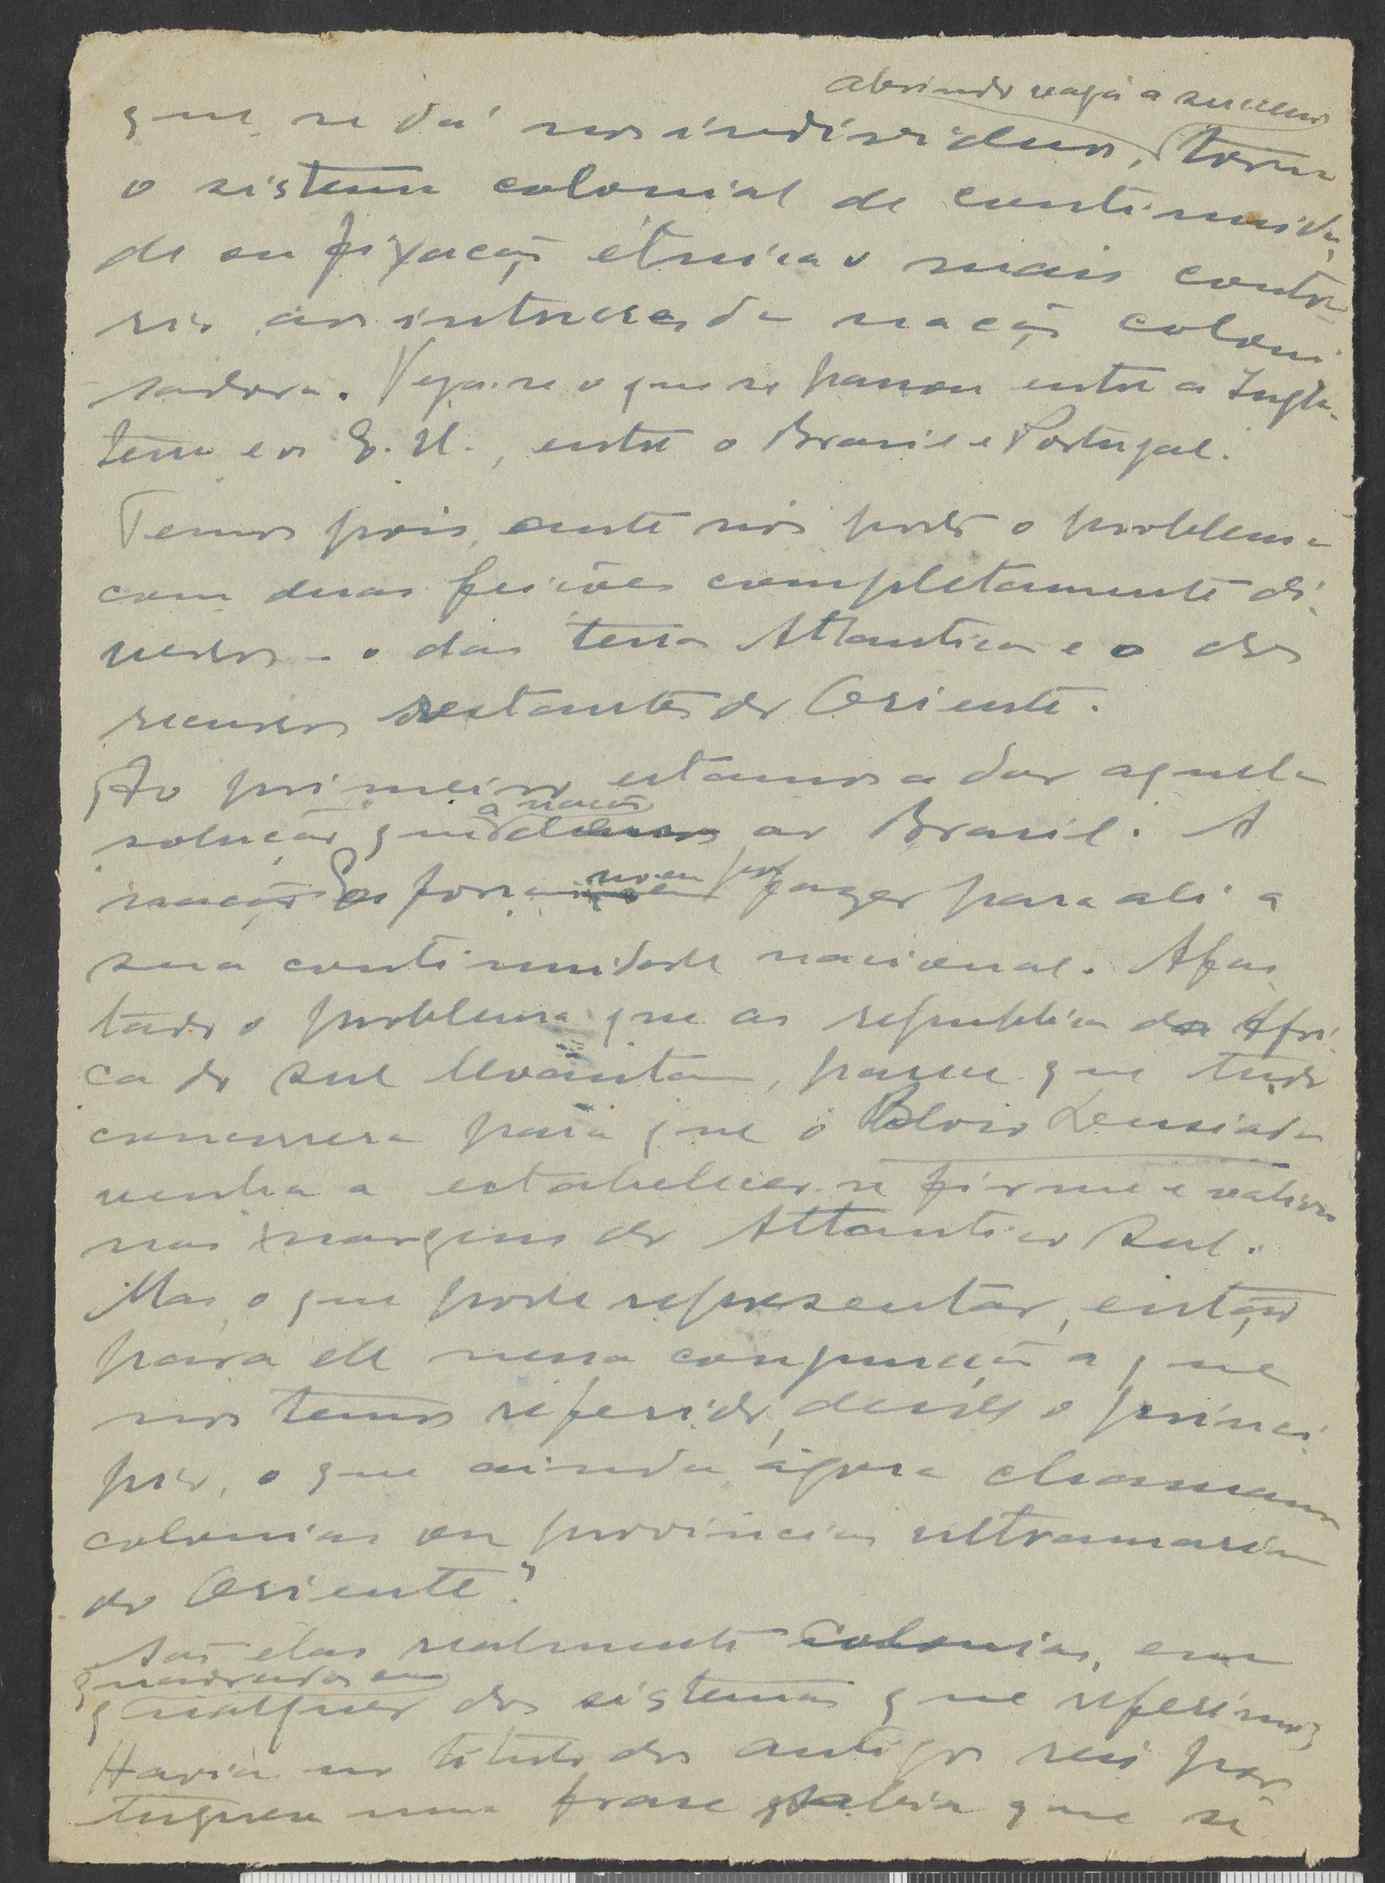 abrindo vaga a sucessor
que se dá nos individuos, torna
o sistema colonial de continuida-
de ou fixação étnica o mais contra-
rio aos interesses da nação coloni
sadora. Veja-se o que se passou entre a Ingla-
terra e os E. U., entre o Brasil e Portugal.
Temos pois, ante nós posto o problema
com duas feições completamente di-
versas - o das terras Atlanticas e o dos
recursos restantes do Oriente.
Ao primeiro estamos a dar aquela
a nação
solução que demos ao Brasil. A
nação Es força-se por fazer para ali a
sua continuidade nacional. Afas
tado o problema que as republicas da Afri-
ca do Sul levantam, parece que tudo
concorrera para que o Bloco Lusiada
venha a estabelecer-se firme e
nas margens do Atlantico Sul.
Mas, o que pode representar, então
para ele nessa conjunção a que
nos temos referido, desde o princi
pio, o que ainda agora chamamos
colonias ou provincias ultramarinas
do Oriente?
São elas realmente Colonias, em
quadradas em
qualquer dos sistemas que referimos?
Havia no titulo dos antigos reis por
tugueses uma frase sabia que se